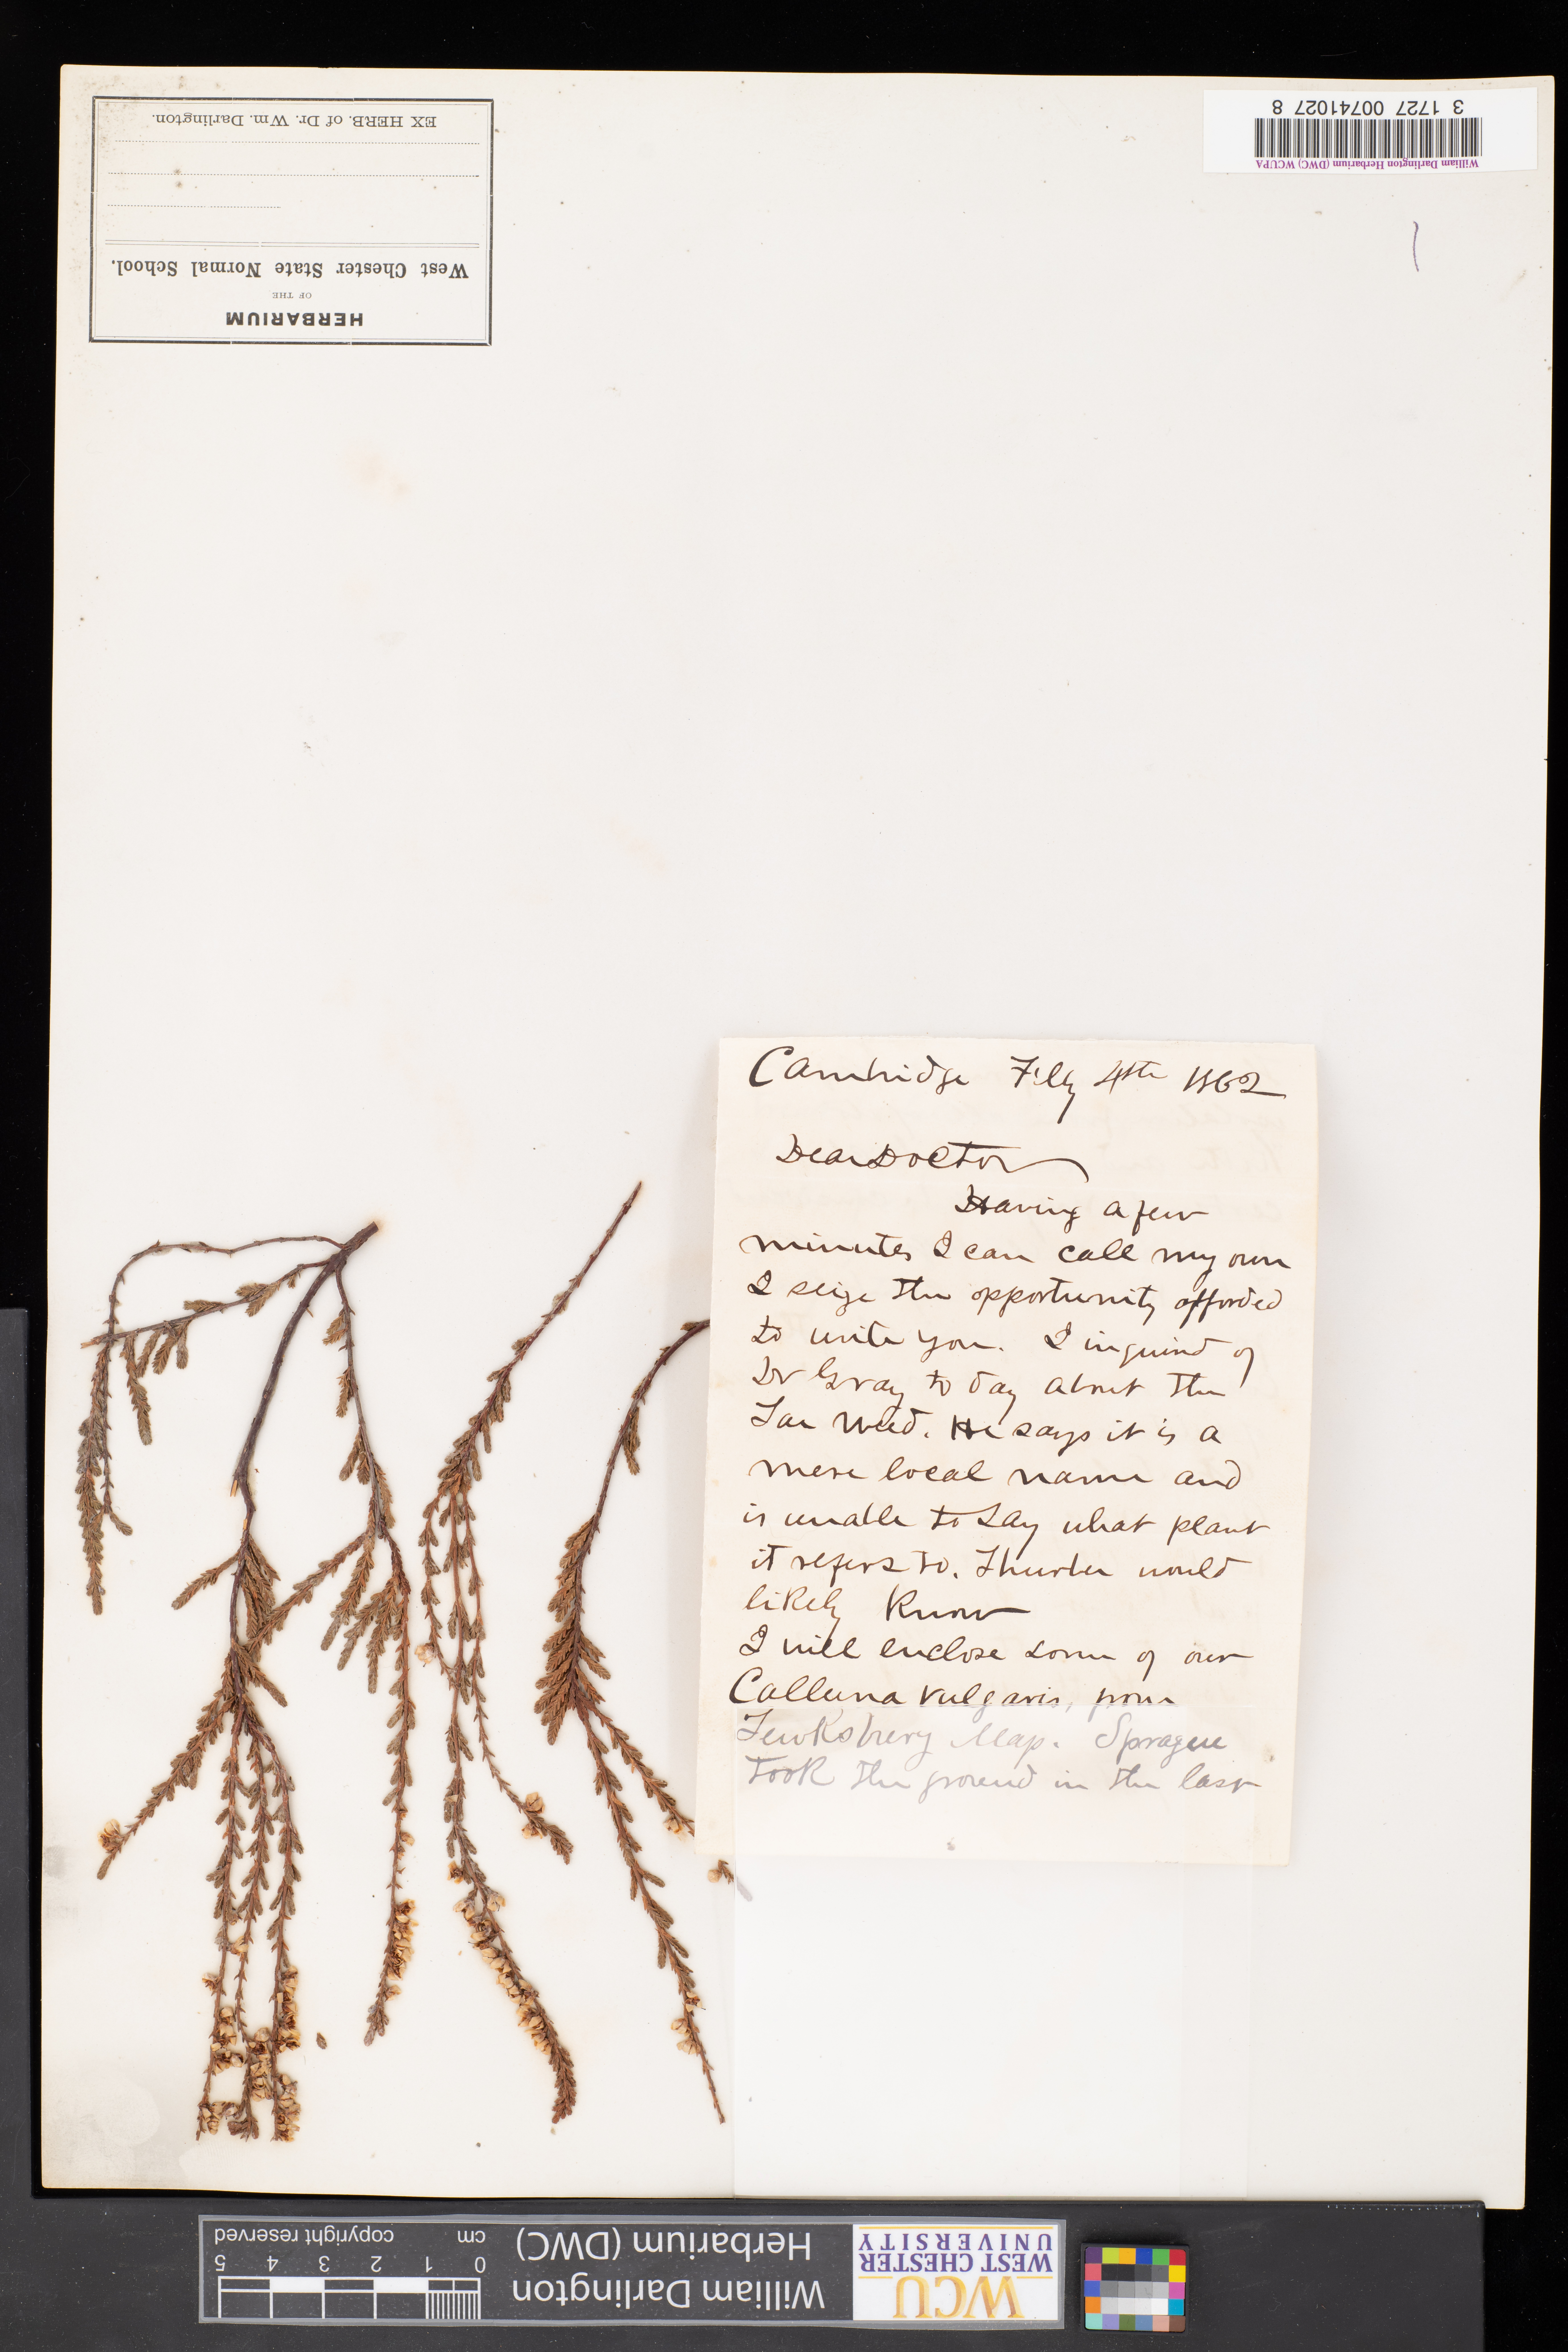 William Darlington Herbarium (DWC) WCUPA
3 1727 00741027 8
HERBARIUM
OF THE
West Chester State Normal School.
EX HERB. of Dr. Wm. Darlington.
Cambridge Feby 4th 1862
Dear Doctor
Having a few
minutes I can call my own
I seize the opportunity afforded
to write you. I inquired of
Dr Gray to day about the
Tar Weed. He says it is a
mere local name and
is unable to say what plant
it refers to. Thurber would
likely know
I will enclose some of our
Calluna vulgaris, from
Tewksbury Map. Sprague
took the ground in the last
WCU
WEST CHESTER
UNIVERSITY
William Darlington
Herbarium (DWC)
0 1 2 3 4 5
cm copyright reserved